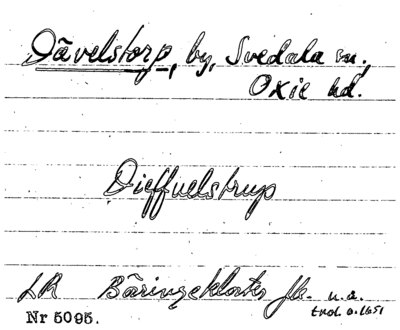 Dävelstorp, by, Svedala sn,
Oxie hd.
Dieffuelstrup
LR Bäringekloster jb. u.a.
Trol. o. 1651
Nr 5095.